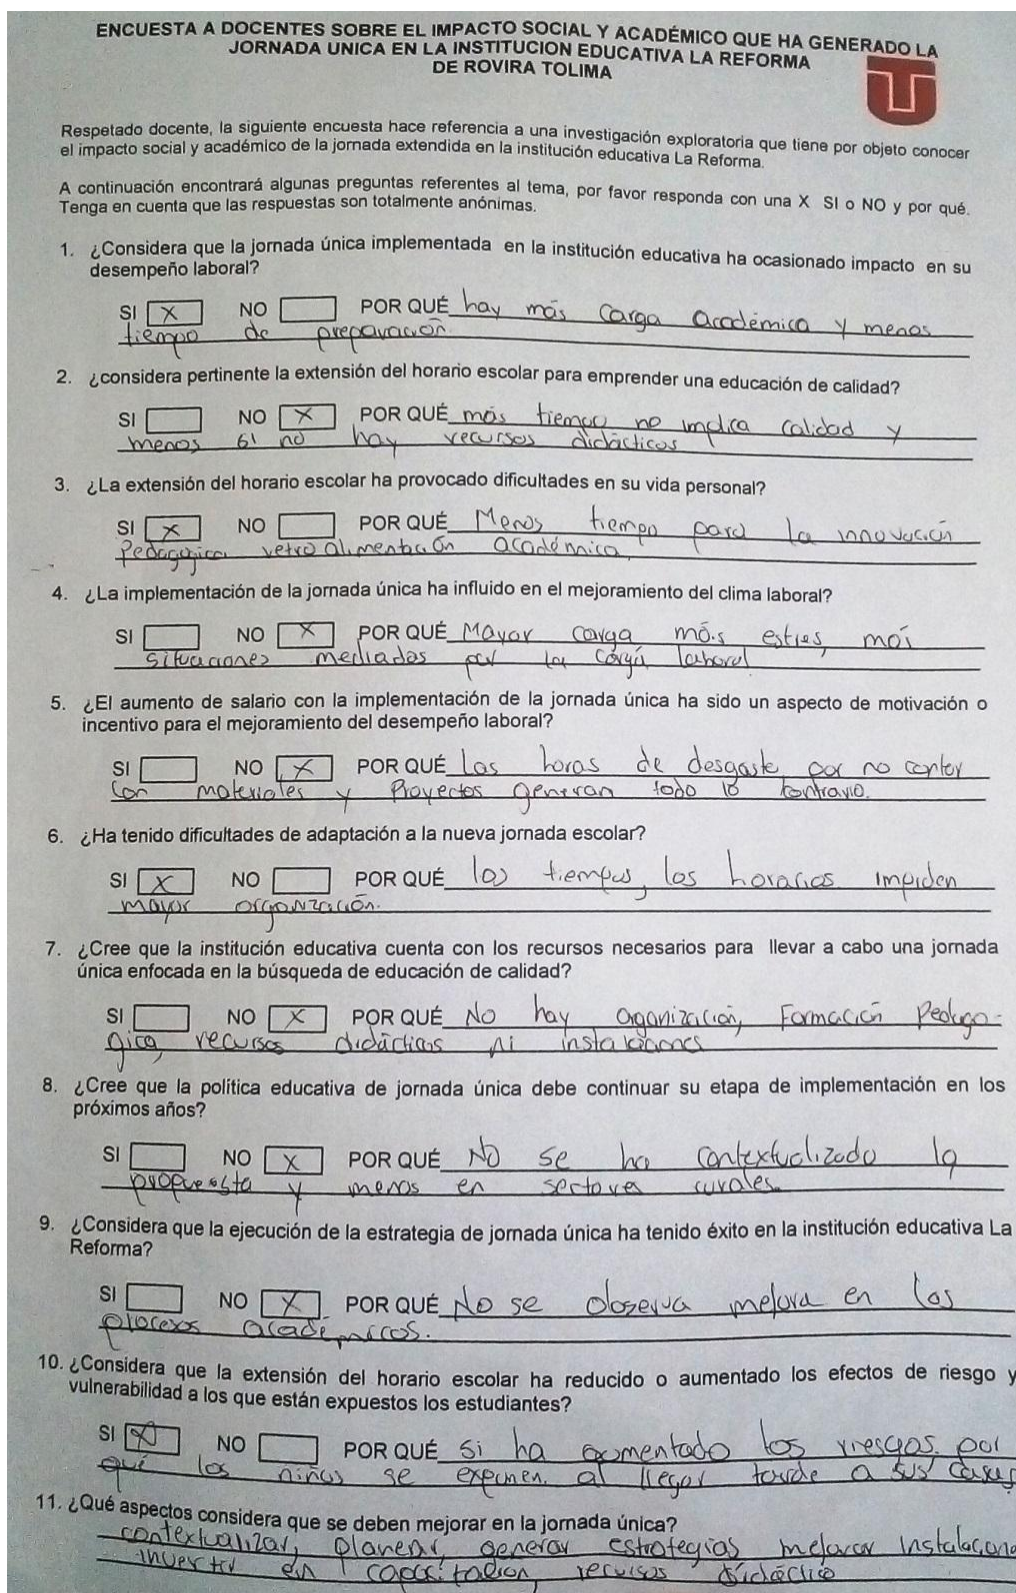 ENCUESTA A DOCENTES SOBRE EL IMPACTO SOCIAL Y ACADÉMICO QUE HA GENERADO LA
JORNADA UNICA EN LA INSTITUCION EDUCATIVA LA REFORMA
DE ROVIRA TOLIMA
Respetado docente, la siguiente encuesta hace referencia a una investigación exploratoria que tiene por objeto conocer
el impacto social y académico de la jornada extendida en la institución educativa La Reforma.
A continuación encontrará algunas preguntas referentes al tema, por favor responda con una X SI o NO y por qué.
Tenga en cuenta que las respuestas son totalmente anónimas.
1. ¿Considera que la jornada única implementada en la institución educativa ha ocasionado impacto en su
desempeño laboral?
SI X NO POR QUÉ hay más carga académica y menos
tiempo de preparación
2. ¿considera pertinente la extensión del horario escolar para emprender una educación de calidad?
SI NO X POR QUÉ más tiempo no implica calidad y
menos si no hay recursos didácticos
3. ¿La extensión del horario escolar ha provocado dificultades en su vida personal?
SI X NO POR QUÉ Menos tiempo para la innovación
Pedagogica retro alimentación académica
4. ¿La implementación de la jornada única ha influido en el mejoramiento del clima laboral?
SI NO X POR QUÉ Mayor carga más estres, más
situaciones mediadas por la carga laboral
5. ¿El aumento de salario con la implementación de la jornada única ha sido un aspecto de motivación o
incentivo para el mejoramiento del desempeño laboral?
SI NO X POR QUÉ Las horas de desgaste por no contar
con materiales y Proyectos generan todo lo contrario.
6. ¿Ha tenido dificultades de adaptación a la nueva jornada escolar?
SI X NO POR QUÉ los tiempos, los horarios impiden
mayor organización.
7. ¿Cree que la institución educativa cuenta con los recursos necesarios para llevar a cabo una jornada
única enfocada en la búsqueda de educación de calidad?
SI NO X POR QUÉ No hay organización, Formación Pedago-
gica, recursos didácticos ni instalaciones
8. ¿Cree que la política educativa de jornada única debe continuar su etapa de implementación en los
próximos años?
SI NO X POR QUÉ No se ha contextualizado la
propuesta y menos en sectores rurales.
9. ¿Considera que la ejecución de la estrategia de jornada única ha tenido éxito en la institución educativa La
Reforma?
SI NO X POR QUÉ No se observa mejora en los
procesos académicos.
10. ¿Considera que la extensión del horario escolar ha reducido o aumentado los efectos de riesgo y
vulnerabilidad a los que están expuestos los estudiantes?
SI X NO POR QUÉ Si ha aumentado los riesgos. por
que los niños se al llegar tarde a sus casas
11. ¿Qué aspectos considera que se deben mejorar en la jornada única?
contextualizar, planear, generar estrategias mejorar instalacione
invertir en capacitación, recursos didáctico